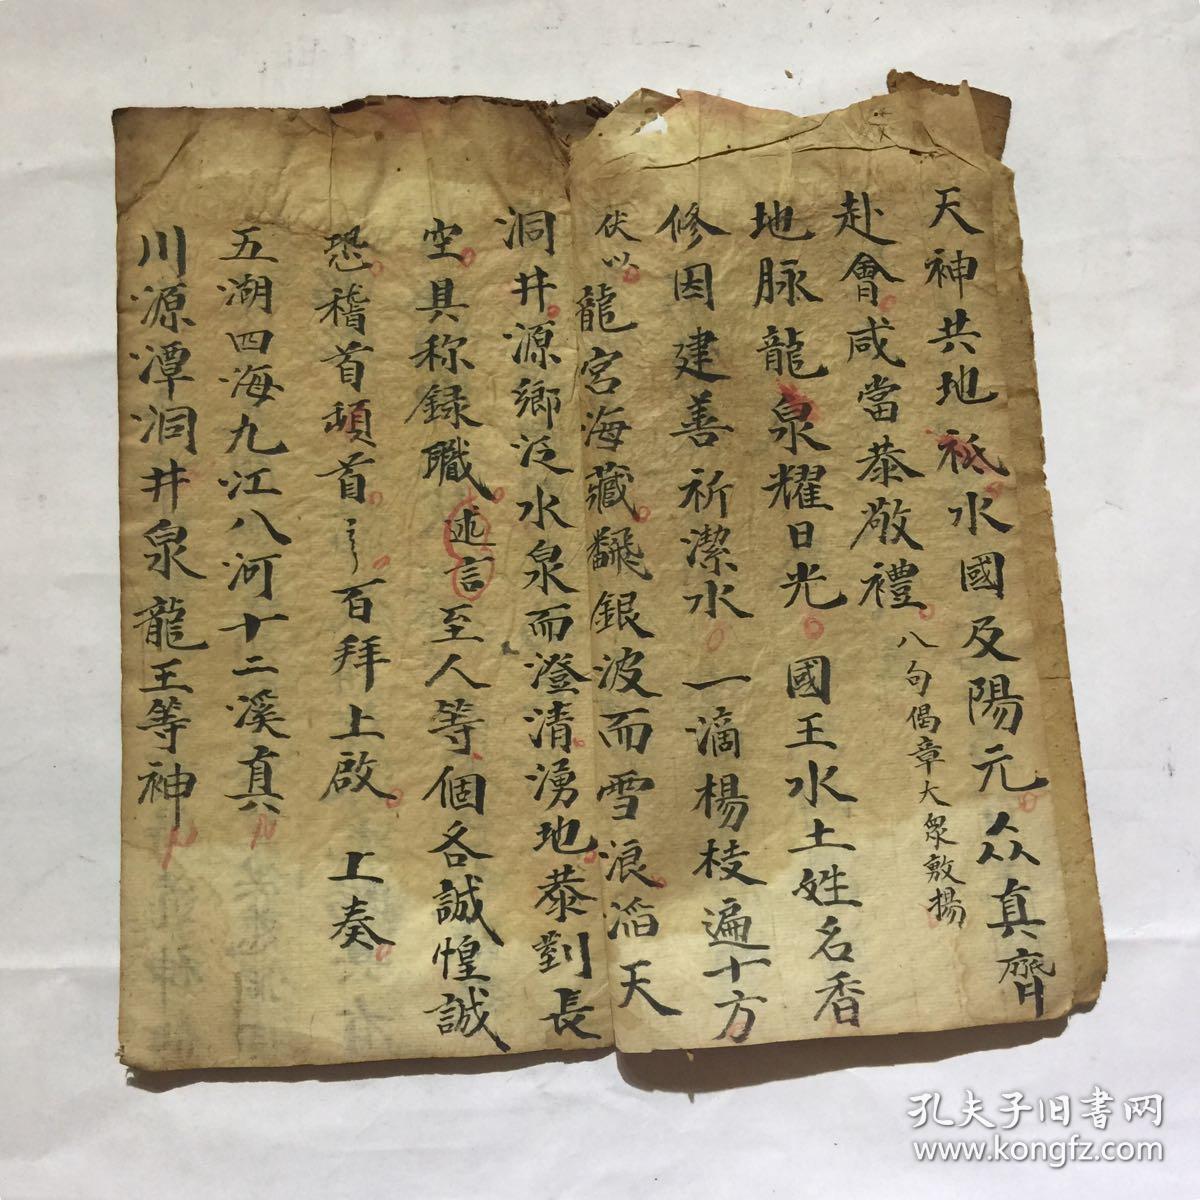 天神共地祇水國及陽元众真齊
赴會咸當恭敬禮八句偈章大眾敷揚
地脉龍泉耀日光國王水土姓名香
修因建善祈潔水一滴楊枝遍十方
伏以龍宮海藏飜銀波而雪浪滔天
洞井源鄉泛水泉而澄清湧地恭對長
空具称録職述言至人等個各誠惶誠
恐稽首頓首百拜上啟上奏
五湖四海九江八河十二溪真
川源潭洞井泉龍王等神
孔夫子旧書网
www.kongfz.com